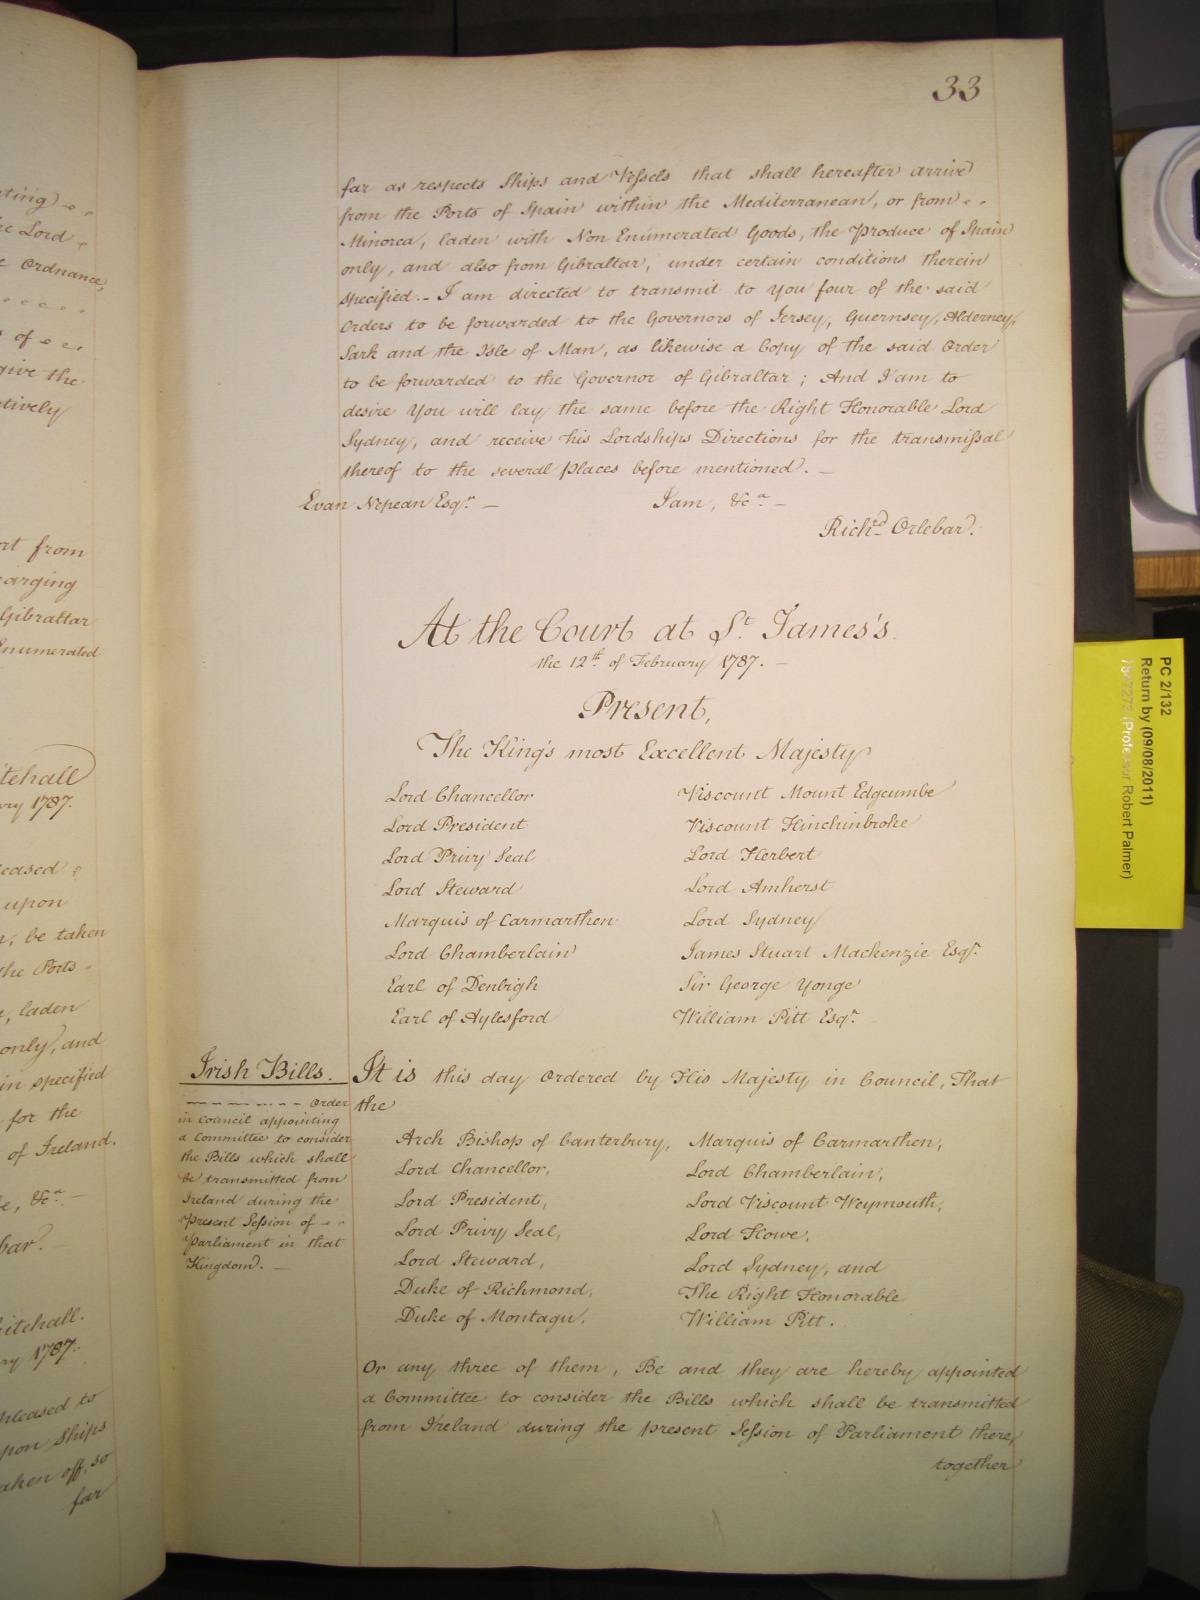 33
far as respects Ships and Vessels that shall hereafter arrive
from the Ports of Spain within the Mediterranean, or from
Minorca, laden with Non Enumerated Goods, the Produce of Spain
only, and also from Gibraltar, under certain conditions therein
specified. - I am directed to transmit to you four of the said
Orders to be forwarded to the Governors of Jersey, Guernsey, Alderney,
Sark and the Isle of Man, as likewise a Copy of the said Order
to be forwarded to the Governor of Gibraltar; And I am to
desire You will lay the same before the Right Honorable Lord
Sydney, and receive his Lordships Directions for the transmissal
thereof to the several places before mentioned. -
Evan Nepean Esqr. - I am, &ca. -
Richd. Orlebar.
At the Court at St. James's
the 12th of February 1787. -
Present,
The King's most Excellent Majesty
Lord Chancellor Viscount Mount Edgcumbe
Lord President Viscount Hinchinbroke
Lord Privy Seal Lord Herbert
Lord Steward Lord Amherst
Marquis of Carmarthen Lord Sydney
Lord Chamberlain James Stuart Mackenzie Esqr.
Earl of Denbigh Sir George Yonge
Earl of Aylesford William Pitt Esqr.
Irish Bills.
Order
in Council appointing
a Committee to consider
the Bills which shall
be transmitted from
Ireland during the
present Session of
Parliament in that
Kingdom. -
It is this day Ordered by His Majesty in Council, That
the
Arch Bishop of Canterbury, Marquis of Carmarthen,
Lord Chancellor, Lord Chamberlain,
Lord President, Lord Viscount Weymouth,
Lord Privy Seal, Lord Howe,
Lord Steward, Lord Sydney, and
Duke of Richmond, The Right Honorable
Duke of Montagu, William Pitt.
Or any three of them, Be and they are hereby appointed
a Committee to consider the Bills which shall be transmitted
from Ireland during the present Session of Parliament there,
together
ting)
Lord
Ordnance,
of
give the
tively
from
arging
Gibraltar
Enumerated
itehall
ry 1787.
eased
upon
be taken
the Ports -
laden
only, and
in specified
for the
of Ireland.
&ca -
bar.
itehall.
ry 1787.
pleased to
pon Ships
aken off, so
far
PC 2/132
Return by (09/08/2011)
(Professor Robert Palmer)